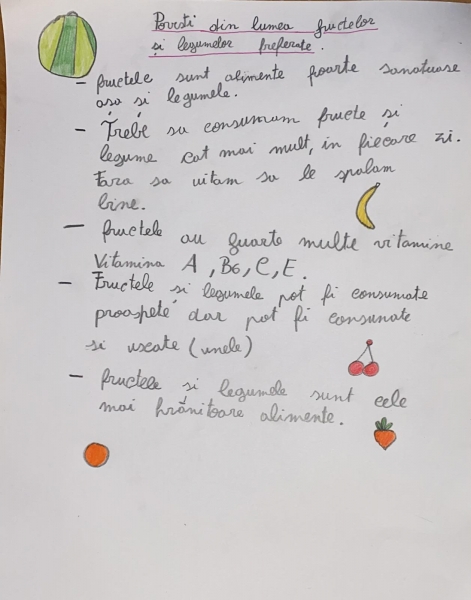 Povesti din lumea fructelor
și legumelor preferate.
- fructele sunt alimente foarte sanatoase
așa și legumele.
- Trebe sa consumam fructe și
legume cat mai mult, in fiecare zi.
Fara sa uitam sa le spalam
bine.
- fructele au foarte multe vitamine
Vitamina A, B6, C, E.
- Fructele si legumele pot fi consumate
proaspete dar pot fi consumate
si uscate (unele)
- fructele si legumele sunt cele
mai hrănitoare alimente.